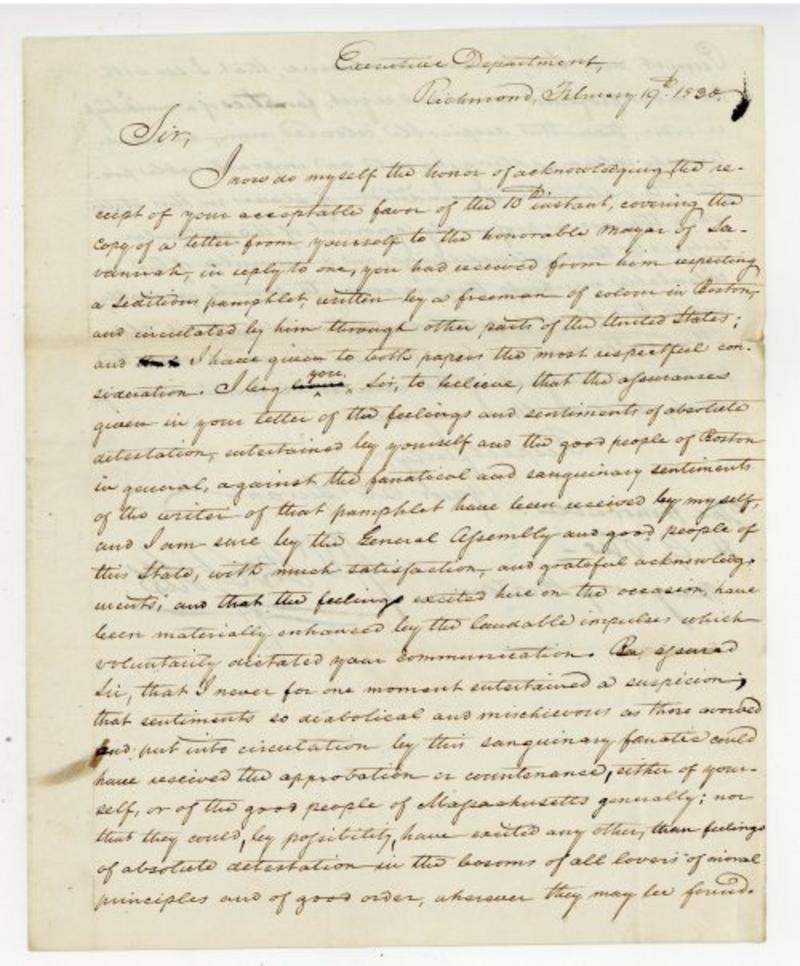 Executive Department,
Richmond, February 19th. 1830.
Sir,
I now do myself the honor of acknowledging the re-
ceipt of your acceptable favor of the 10th instant, covering the
copy of a letter from yourself to the honorable Mayor of Sa-
vannah, in reply to one, you had received from him respecting
a seditious pamphlet, written by a freeman of colour in Boston,
and circulated by him through other parts of the United States;
and I have given to both papers the most respectful con-
sideration. I beg you, Sir, to believe, that the assurances
given in your letter of the feelings and sentiments of absolute
detestation, entertained by yourself and the good people of Boston
in general, against the fanatical and sanguinary sentiments
of the writer of that pamphlet have been received by myself,
and I am sure by the General Assembly and good people of
this State, with much satisfaction, and grateful acknowledg-
ments; and that the feelings excited here on the occasion, have
been materially enhanced by the laudable impulses which
voluntarily dictated your communication. Be assured
Sir, that I never for one moment entertained a suspicion,
that sentiments so diabolical and mischievous as those avowed
and put into circulation by this sanguinary fanatic could
have received the approbation or countenance, either of your-
self, or of the good people of Massachusetts generally; nor
that they could, by possibility, have excited any other, than feelings
of absolute detestation in the bosoms of all lovers of moral
principles and of good order, wherever they may be found.